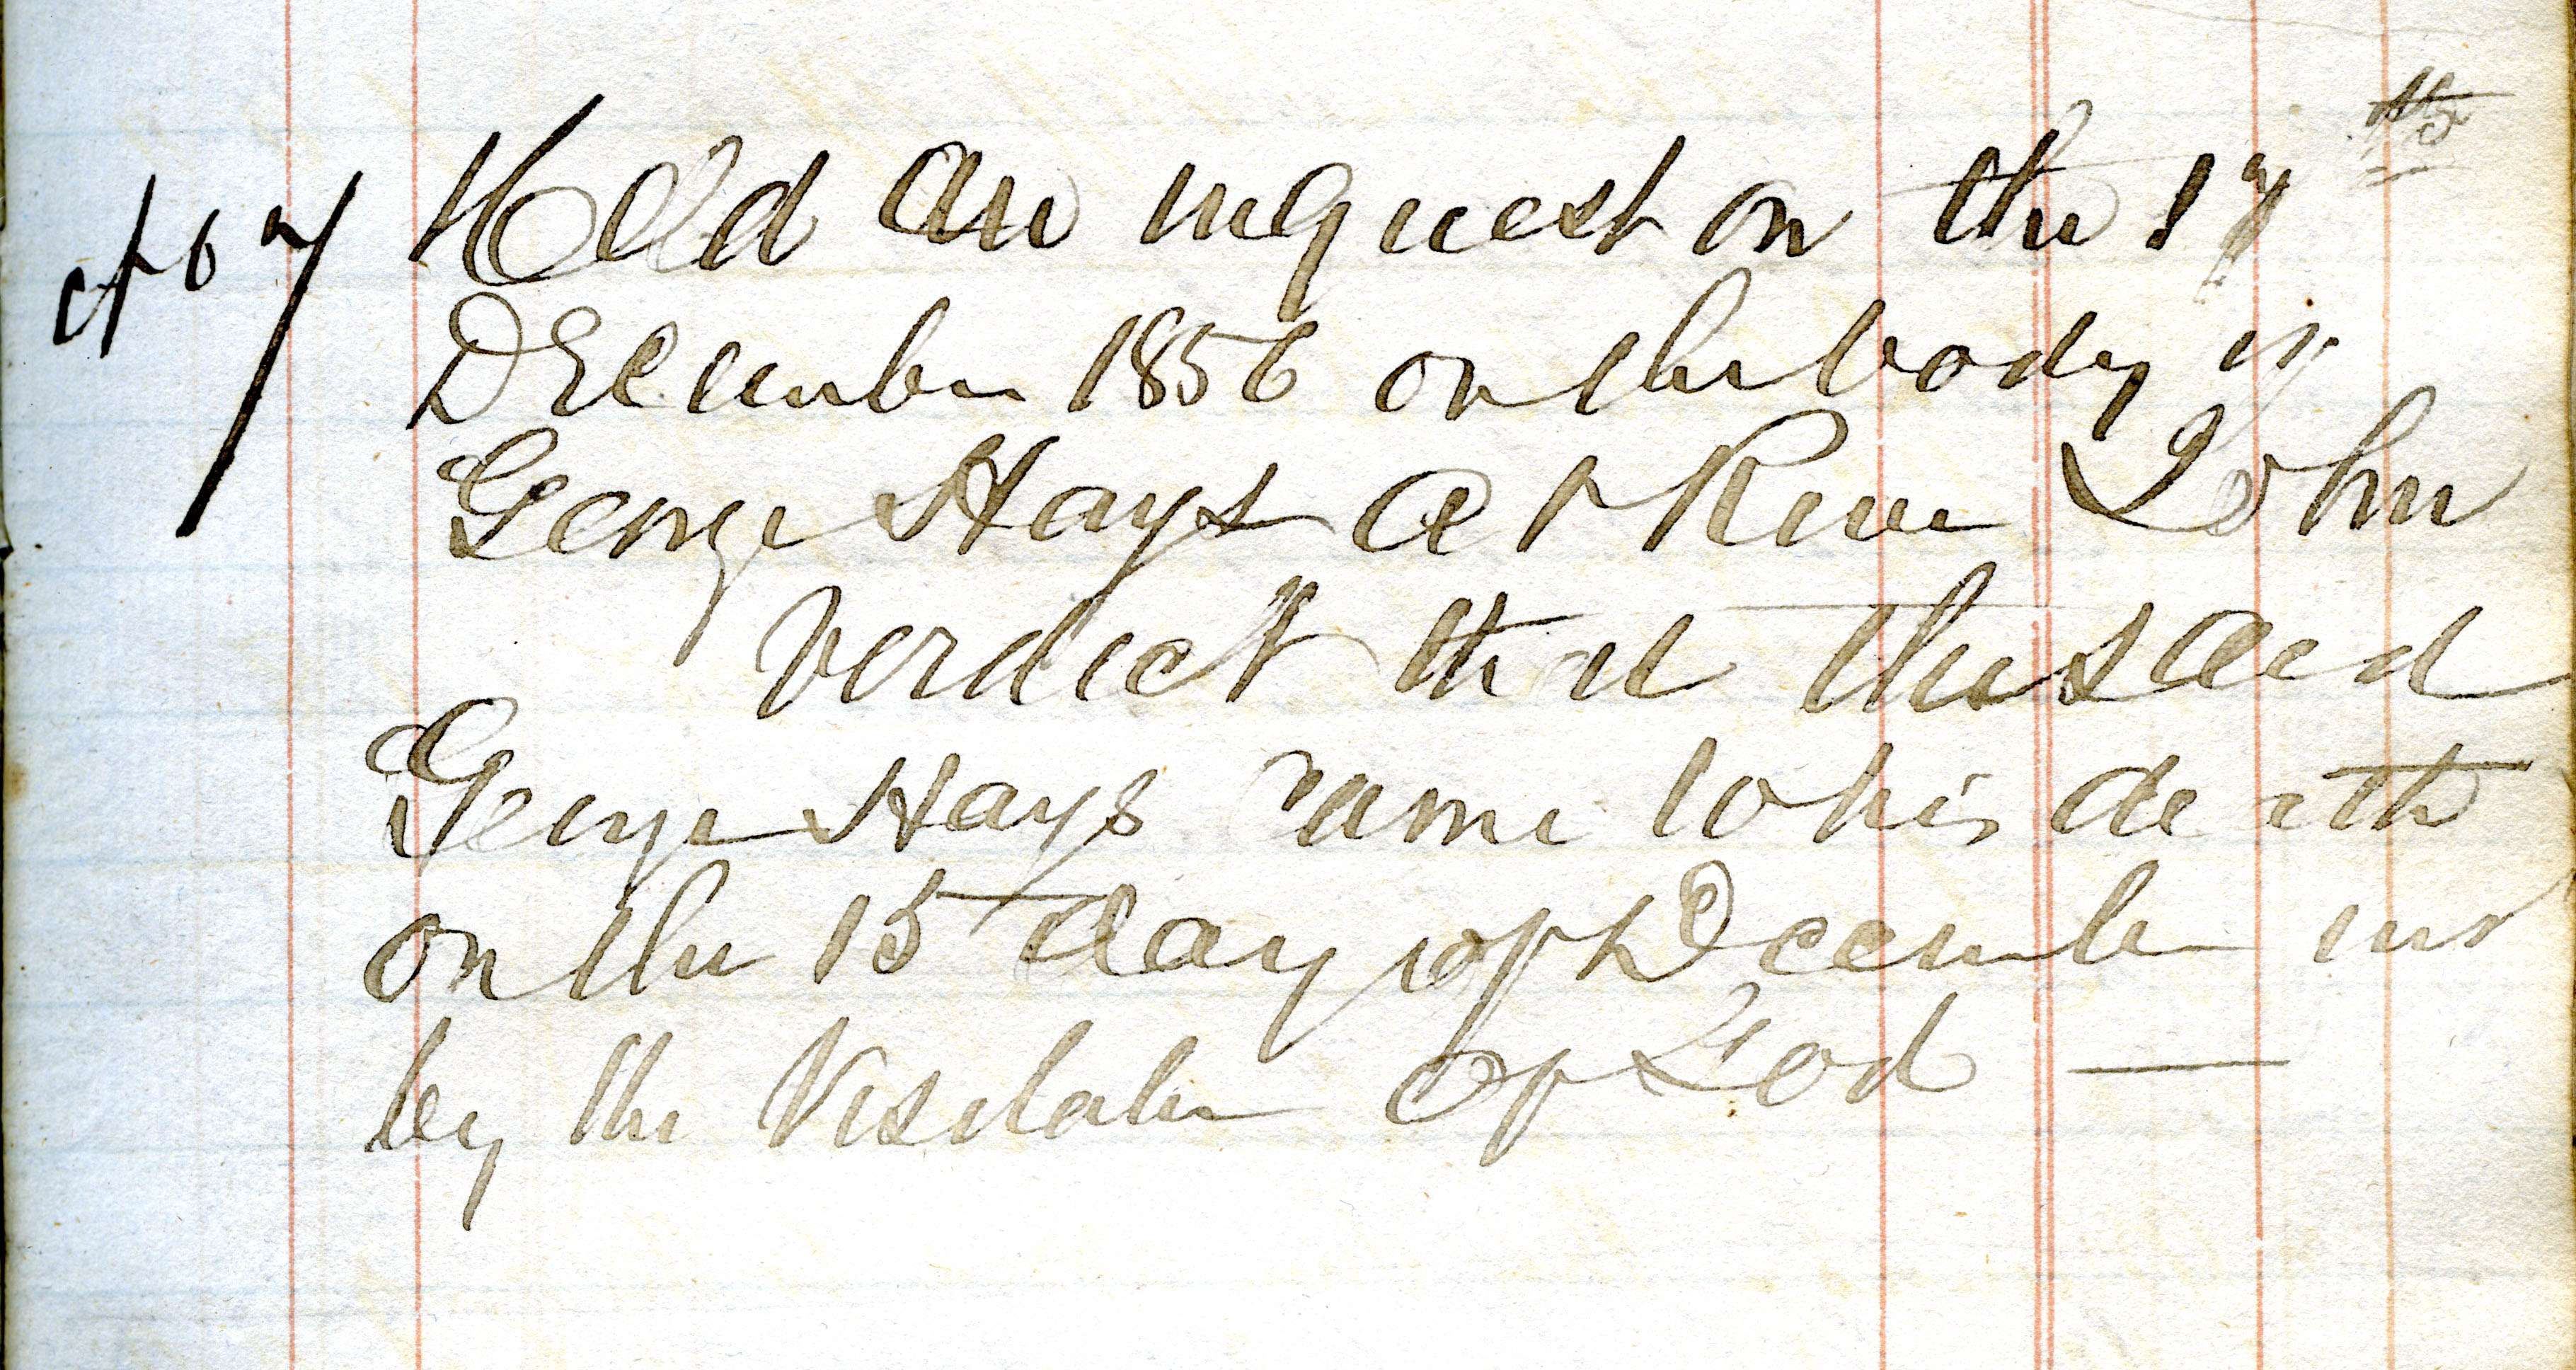 No 7 Held an inquest on the 17th
December 1856 on the body of
George Hays at River John
Verdict that the said
George Hays came to his death
on the 15 day of December ins
by the Visitation of God —